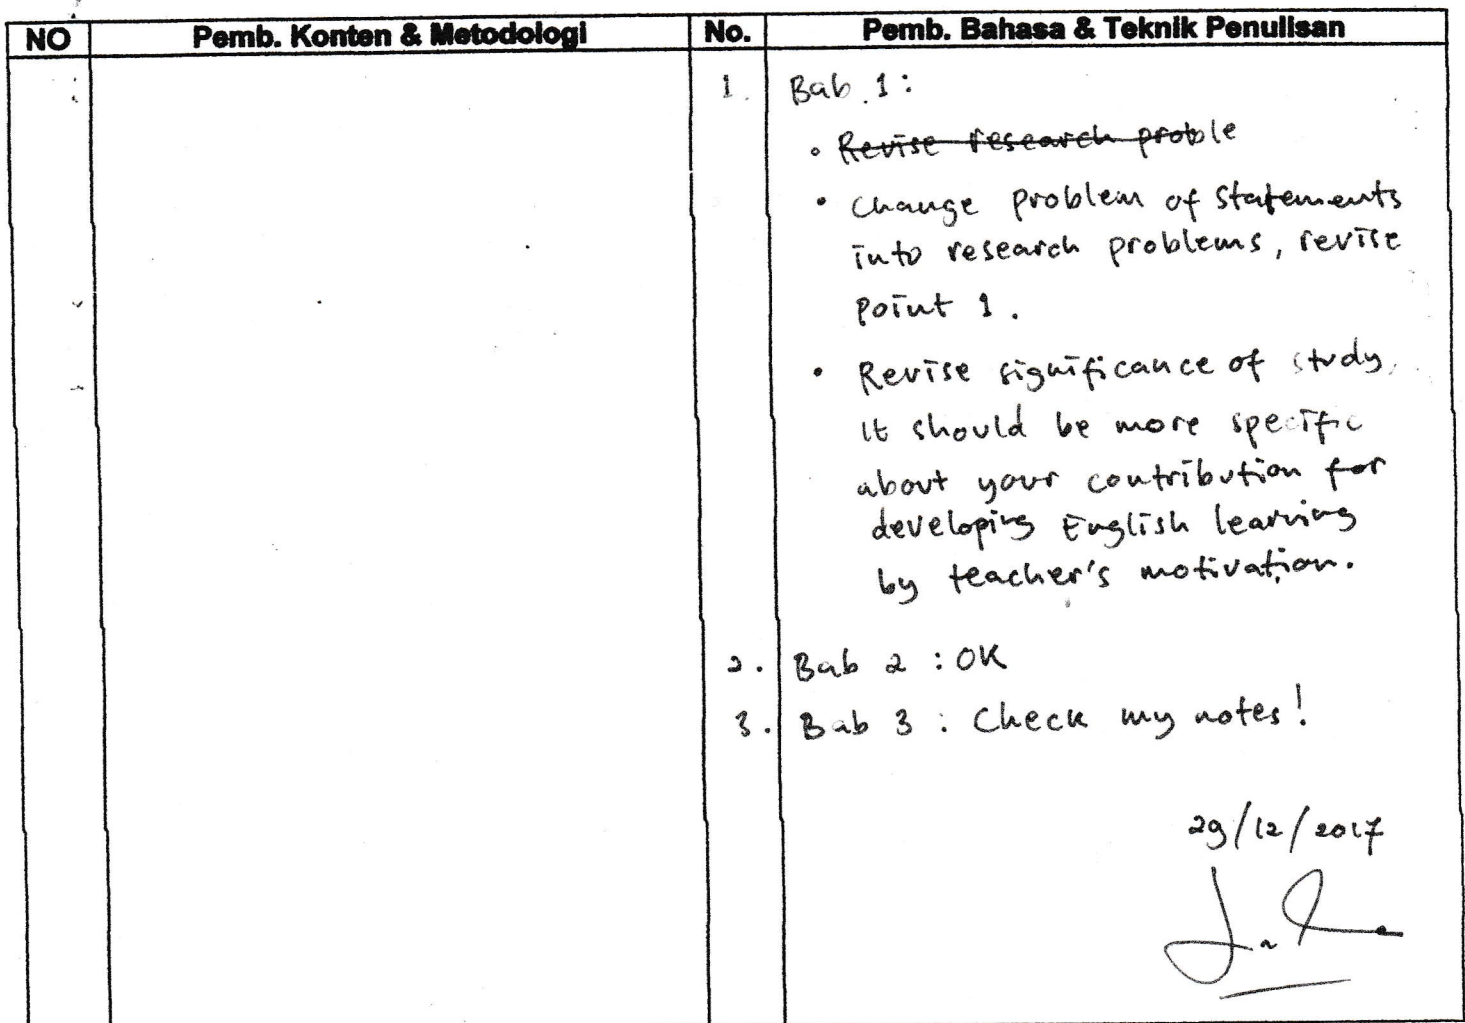 NO Pemb. Konten & Metodologi No. Pemb. Bahasa & Teknik Penulisan
1. Bab 1:
• Revise research proble
• Change problem of statements
into research problems, revise
point 1.
• Revise significance of study,
it should be more specific
about your contribution for
developing English learning
by teacher's motivation.
2. Bab 2 : OK
3. Bab 3 : Check my notes!
29/12/2017